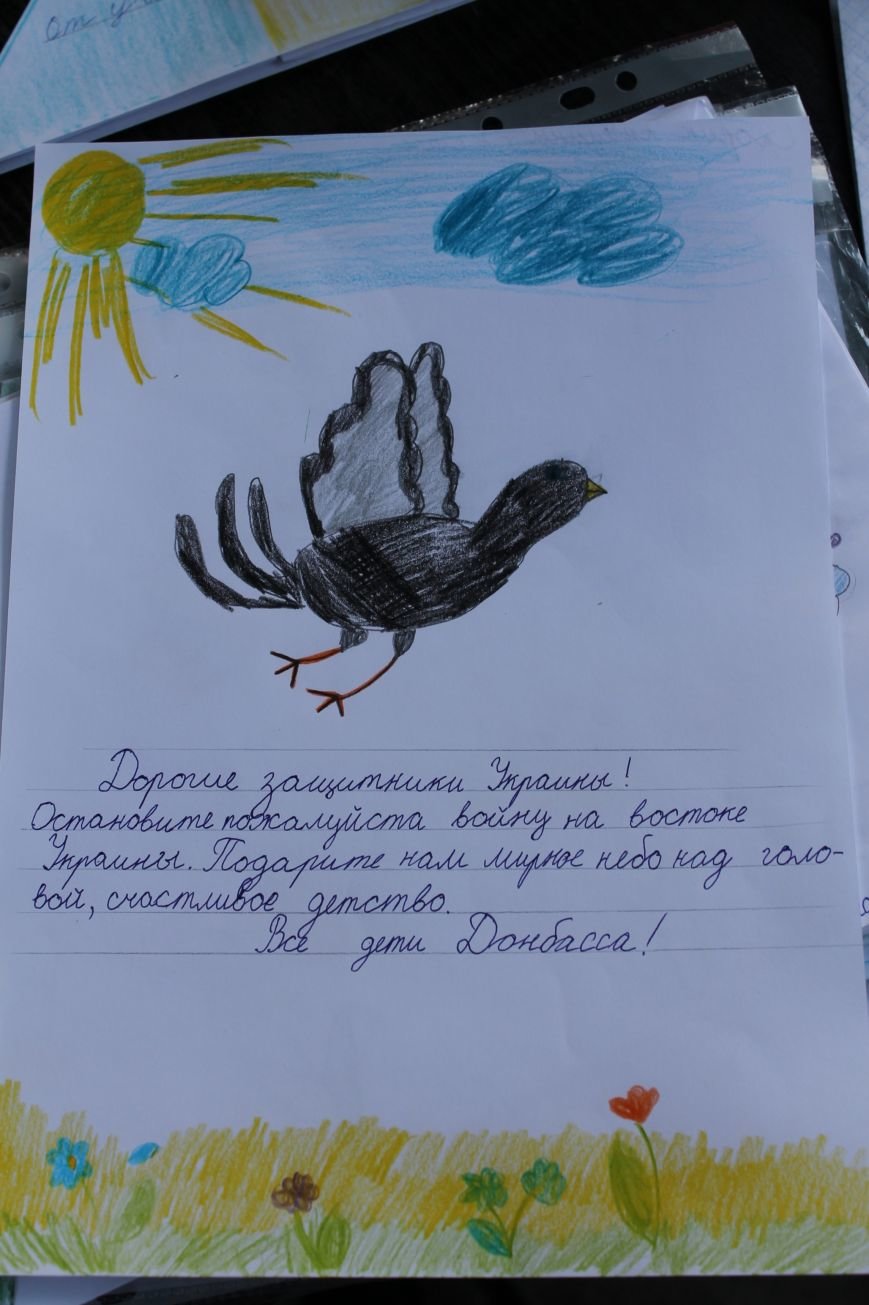 От
Дорогие защитники Украины!
Остановите пожалуйста войну на востоке
Украины. Подарите нам мирное небо над голо-
вой, счастливое детство.
Все дети Донбасса!